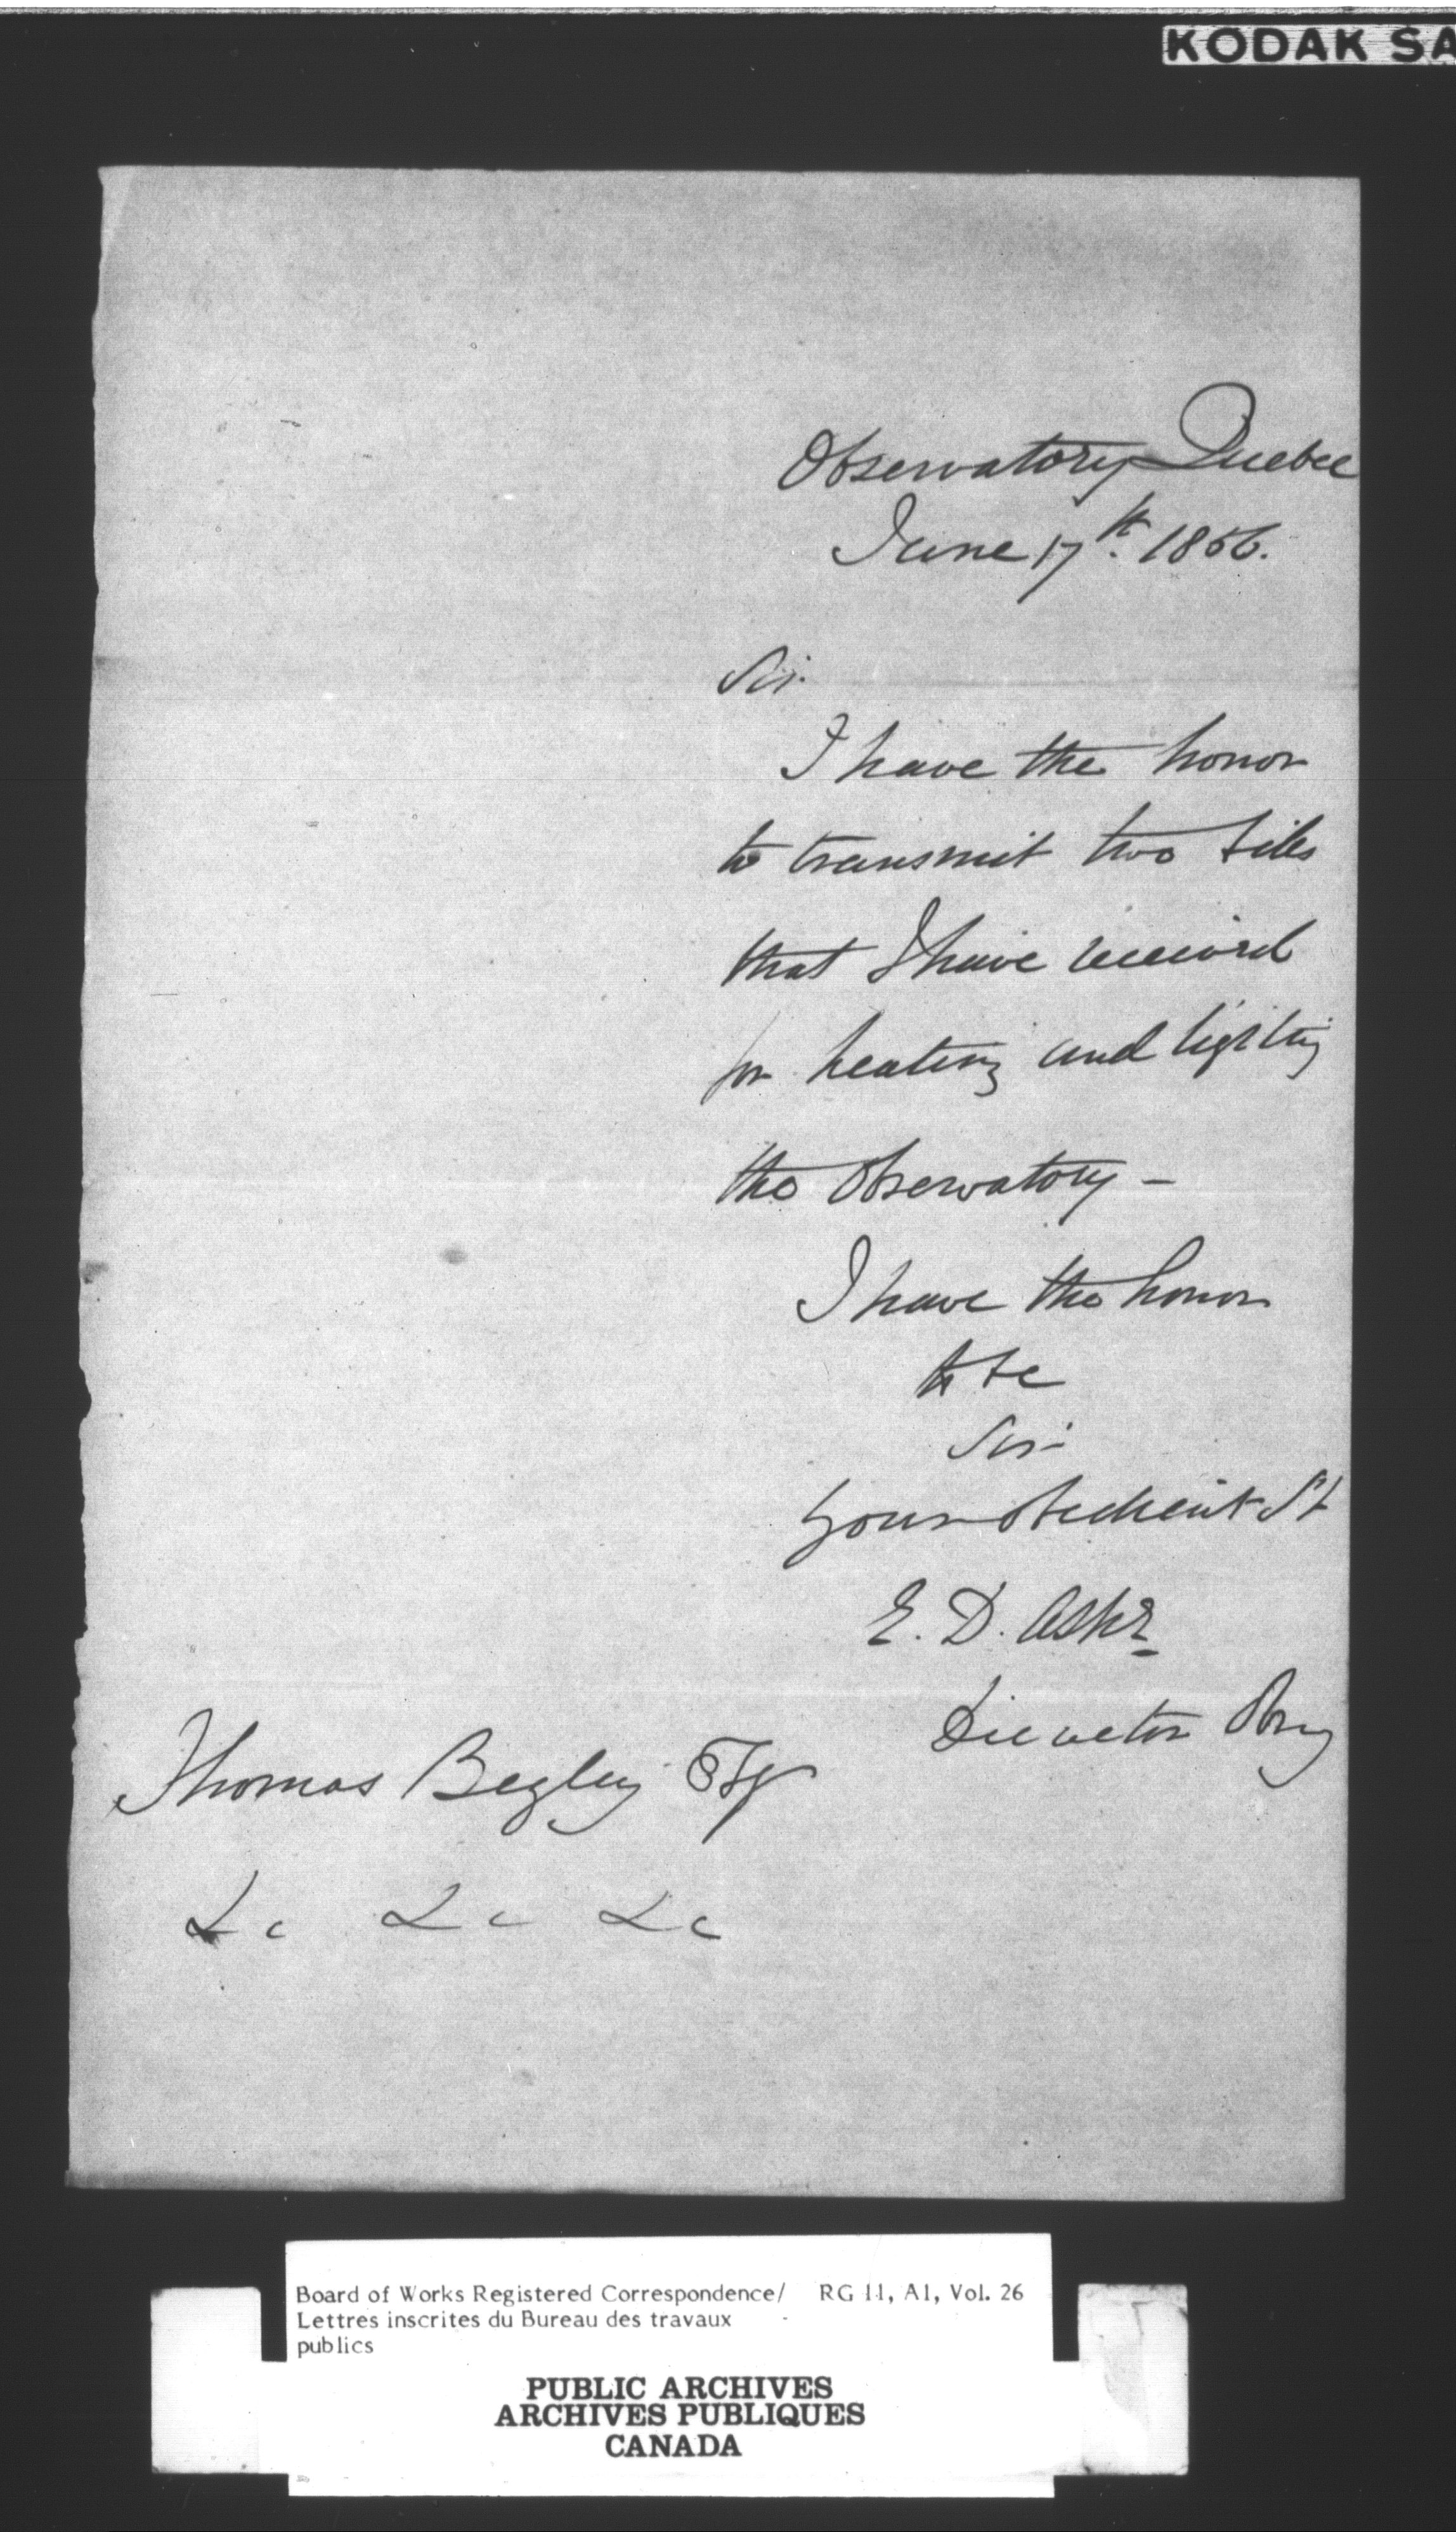 KODAK SA
Observatory Quebec
June 17th. 1856.
Sir
I have the honor
to transmit two bills
that I have received
for heating and lighting
the Observatory -
I have the honor
to be
Sir
Your obedient St
E. D. Ashe
Director Obsy
Thomas Begley Esq
&c &c &c
Board of Works Registered Correspondence/ RG 11, A1, Vol. 26
Lettres inscrites du Bureau des travaux
publics
PUBLIC ARCHIVES
ARCHIVES PUBLIQUES
CANADA